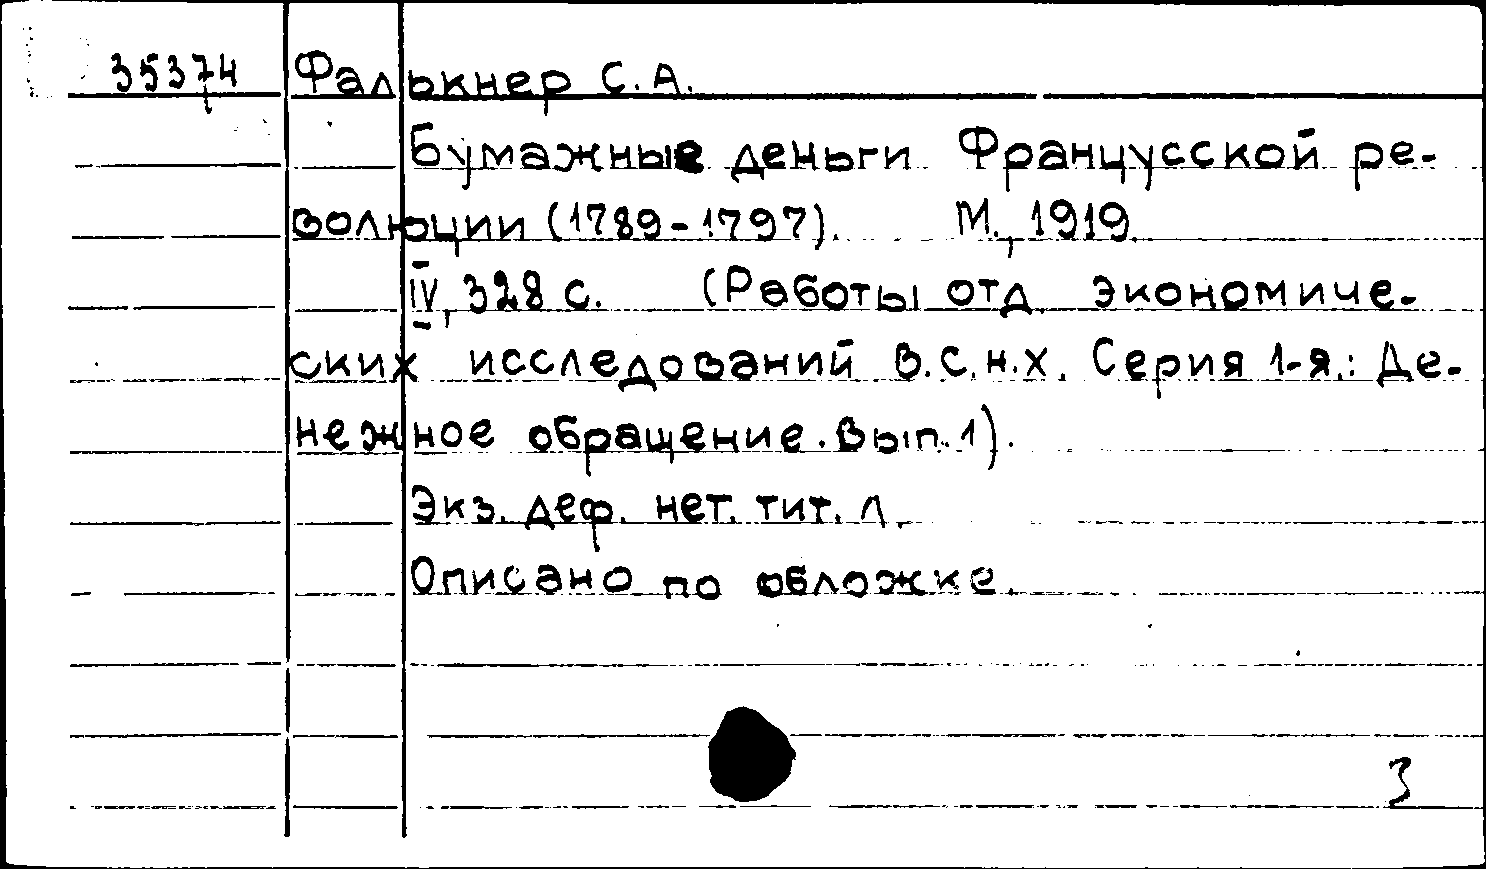 35374 Фалькнер С.А.
Бумажные деньги Французской ре-
волюции (1789-1797). М., 1919
IV, 328 с. (Работы отд. экономиче-
ских исследований В.С.Н.Х. Серия 1-я.: Де-
нежное обращение. Вып. 1).
Экз. деф. нет. тит. л.
Описано по обложке.
3